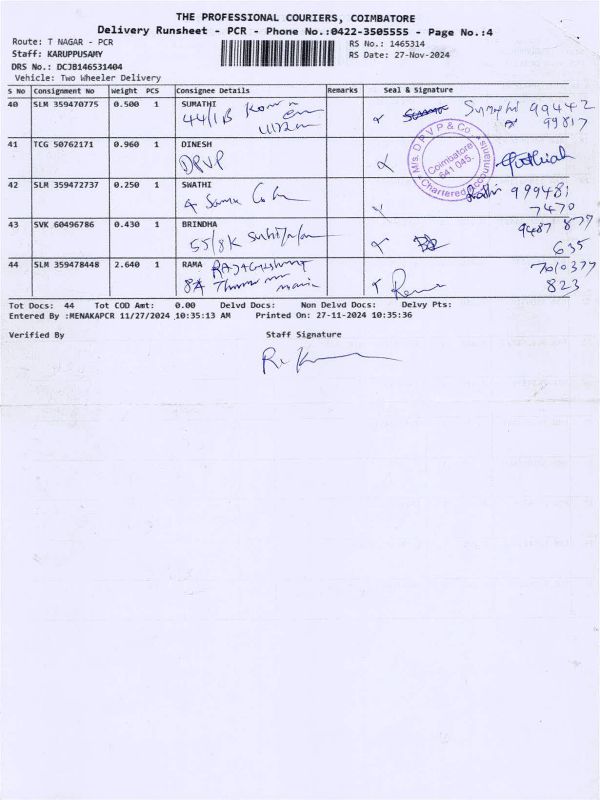 THE PROFESSIONAL COURIERS, COIMBATORE
Delivery Runsheet - PCR - Phone No.:0422-3505555 - Page No.:4
Route: T NAGAR - PCR
RS No.: 1465314
Staff: KARUPPUSAMY
RS Date: 27-Nov-2024
DRS No.: DCJB146531404
Vehicle: Two Wheeler Delivery
S No Consignment No Weight PCS Consignee Details Remarks Seal & Signature
40 SLM 359470775 0.500 1 SUMATHI Sumathi 99442
44/1B 99817
41 TCG 50762171 0.960 1 DINESH
DPVP
M/s. D P V P & Co.
Coimbatore
641 045.
Chartered Accountants
42 SLM 359472737 0.250 1 SWATHI 999481
4 7470
43 SVK 60496786 0.430 1 BRINDHA 9487 877
55/8K 635
44 SLM 359478448 2.640 1 RAMA 7010377
8A Rama 823
Tot Docs: 44 Tot COD Amt: 0.00 Delvd Docs: Non Delvd Docs: Delvy Pts:
Entered By :MENAKAPCR 11/27/2024 10:35:13 AM Printed On: 27-11-2024 10:35:36
Verified By Staff Signature